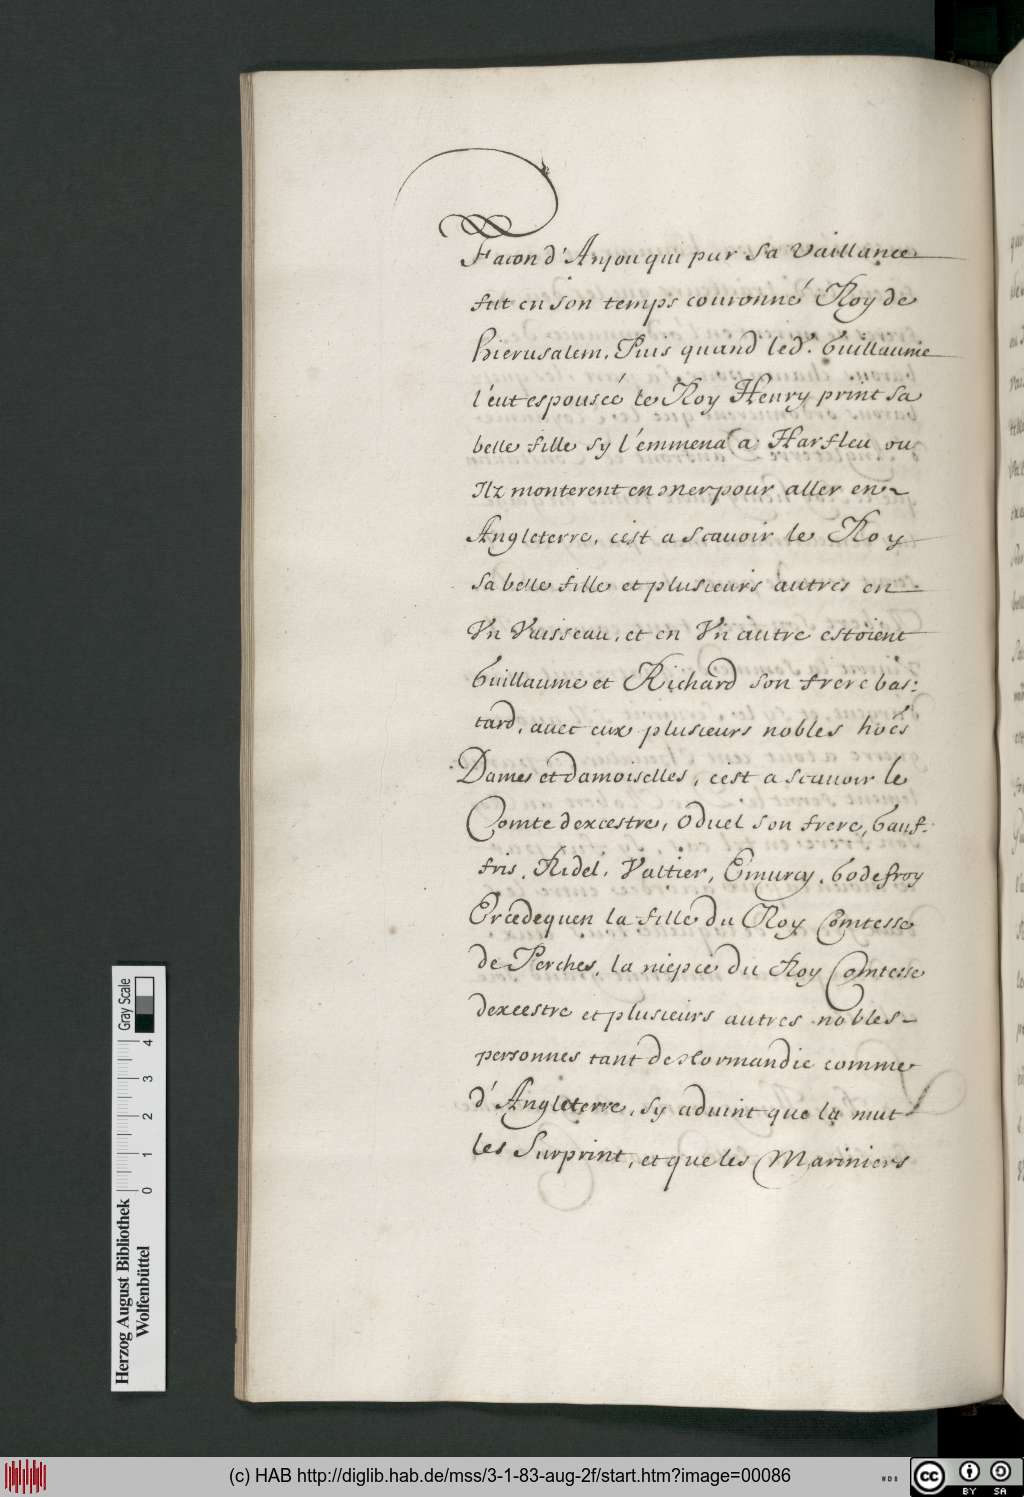 Facon d'Anjou qui par sa vaillance
fut en son temps couronné Roy de
hierusalem. Puis quand led. Guillaume
l'eut espouséé le Roy Henry print sa
belle fille sy l'emmena a Harfleu ou
Ilz monterent en mer pour aller en
Angleterre, c'est a scauoir le Roy
sa belle fille et plusieurs autres en
Vn Vaisseau, et en Vn autre estoient
Guillaume et Richard son frere bas:
tard, auec eux plusieurs nobles hoes
Dames et damoiselles, c'est a scauoir le
Comte dexcestre, Oduel son frere, Gauf:
fris, Ridel, Valtier, Emurcy, Godefroy
Ercedequen la fille du Roy Comtesse
de Perches, la niepce du Roy Comtesse
dexcestre et plusieurs autres nobles
personnes tant de Normandie comme
d'Angleterre, sy aduint que la nuit
les Surprint, et que les Mariniers
Herzog August Bibliothek
Wolfenbüttel
0 1 2 3 4
Gray Scale
(c) HAB http://diglib.hab.de/mss/3-1-83-aug-2f/start.htm?image=00086
WDB
cc BY SA